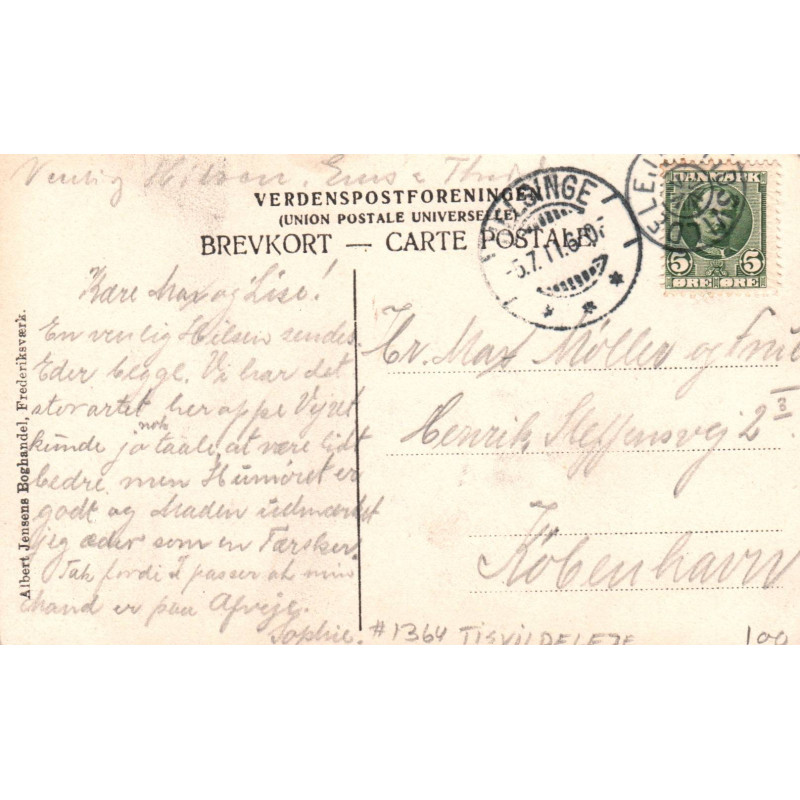 Venlig Hilsen,
VERDENSPOSTFORENINGEN
(UNION POSTALE UNIVERSELLE)
BREVKORT — CARTE POSTALE
HELSINGE
5.7.11.
DANMARK
5 5
ØRE ØRE
Albert Jensens Boghandel, Frederiksværk.
Kære Max og Lise!
En venlig Hilsen sendes
Eder begge. Vi har det
storartet her oppe Vejret
kunde jo nok taale, at være lidt
bedre men Humøret er
godt og Maden udmærket
jeg æder som en Tærsker.
Tak fordi I passer at min
Mand er paa Afveje.
Sophie.
Hr. Max Møller og Frue
Henrik Steffensvej 2
København
#1364 TISVILDELEJE
100